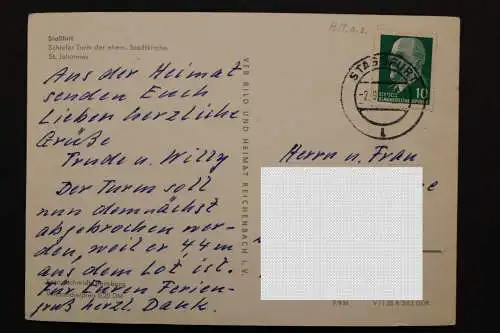 Staßfurt
Schiefer Turm der ehem. Stadtkirche
St. Johannes
Aus der Heimat
senden Euch
Lieben herzliche
Grüße
Trude u. Willy
Der Turm soll
nun demnächst
abgebrochen wer-
den, weil er 4,4 m
aus dem Lot ist.
Für Euren Ferien-
gruß herzl. Dank.
VEB BILD UND HEIMAT REICHENBACH I. V.
STASSFURT
1
10
DEUTSCHE
DEMOKRATISCHE REPUBLIK
Herrn u. Frau